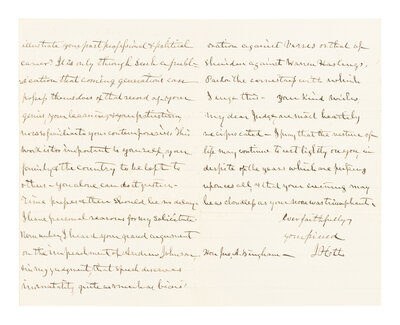 illustrate your past professional & political
career? It is only through such a publi-
cation that coming generations can
possess themselves of that record of your
genius, your learning & your patriotism,
now so familiar to your contemporaries. This
work is too important to yourself, your
family & the country to be left to
others - you alone can do it justice.
Time passes & there should be no delay.
I have personal reasons for my solicitude
Now when I heard your grand argument
on the impeachment of Andrew Johnson
in my judgment, that speech deserves
immortality quite as much as Cicero'
oration against Verres or that of
Sheridan against Warren Hastings.
Pardon the earnestness with which
I urge this - Your kind wishes,
my dear Judge, are most heartily
reciprocated - I pray that the
life may continue to rest lightly on you in
despite of the years which are pressing
upon us all & that your evening may
be as cloudless as your noon was triumphant -
Ever faithfully
your friend
J Holt
Hon Jno A. Bingham -